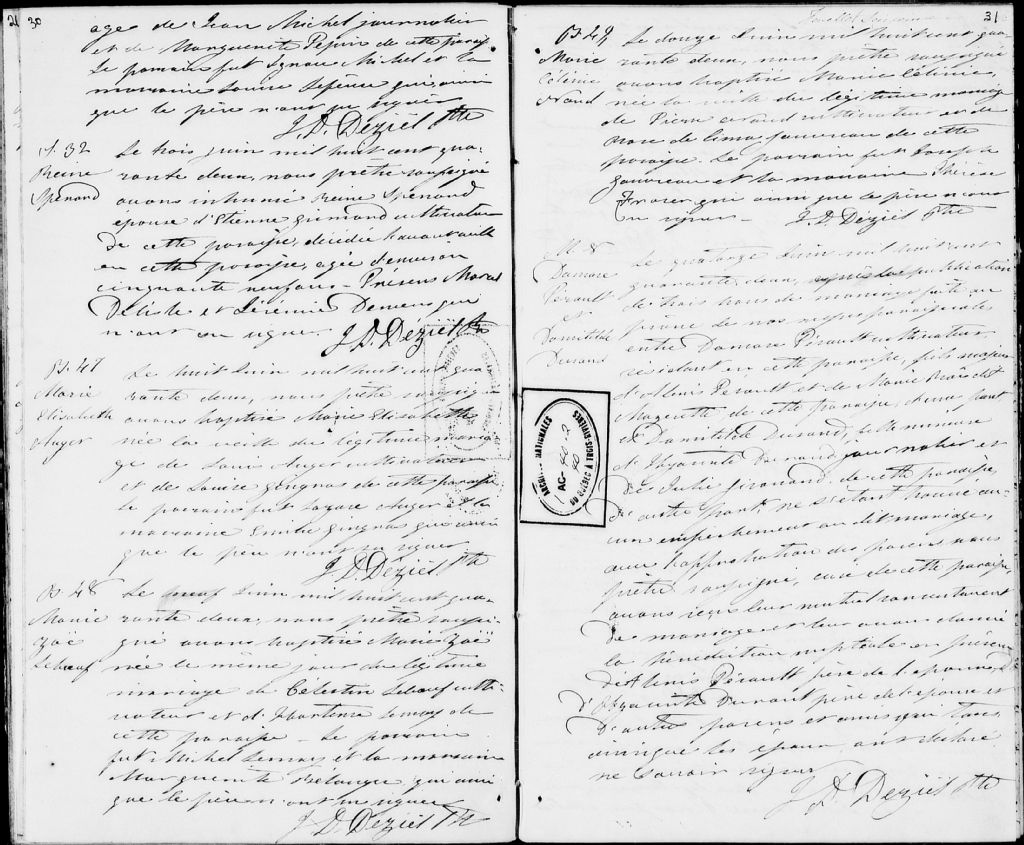 30
age de Jean Michel journalier
et de Marguerite Pepin de cette parois.
Le parrain fut Ignace Michel et la
marraine Louise Lefevre qui ainsi
que le père n'ont su signer
J. D. Déziel Ptre
S. 32
Reine
Spénard
Le trois juin mil huit cent qua-
rante deux, nous prêtre soussigné
avons inhumé Reine Spénard
épouse d'Etienne Grimard cultivateur
de cette paroisse, décédée
en cette paroisse, agée d'environ
cinquante neuf ans. Présens
Delisle et Jérémie Demers qui
n'ont su signer J. D. Déziel Ptre
B. 47
Marie
Elisabeth
Auger
Le huit Juin mil huit cent qua
rante deux, nous prêtre soussign
avons baptisé Marie Elisabeth
née la veille du légitime maria
ge de Louis Auger cultivateur
et de Louise Gingras de cette paroisse
le parrain fut Lazare Auger et la
marraine Emilie Gingras qui ainsi
que le père n'ont su signer
J. D. Déziel Ptre
B 48
Marie
Zoë
Leboeuf
Le neuf Juin mil huit cent qua-
rante deux, nous prêtre soussi-
gné avons baptisé Marie Zoë
née le même jour du légitime
mariage de Célestin Leboeuf culti-
vateur et d'Hortense Lemay de
cette paroisse - Le parrain
fut Michel Lemay et la marraine
Marguerite Bélanger qui ainsi
que le père n'ont su signer
J. D. Déziel Ptre
31
B 49
Marie
Célinie
Le douze Juin mil huit cent qua
rante deux, nous prêtre soussigné
avons baptisé Marie Célinie,
née la veille du légitime mariage
de Pierre cultivateur et de
Rose de Lima Gauvreau de cette
paroisse. Le parrain fut Joseph
Gauvreau et la marraine Thérèse
Fraser qui ainsi que le père n'ont
su signer - J. D. Déziel Ptre
M. 8
Damase
Pérault
et
Domitilde
Durand
Le quatorze Juin mil huit cent
quarante deux, après la publication
de trois bans de mariage faite au
prône de nos messes paroissiales
entre Damase Pérault cultivateur
résidant en cette paroisse, fils majeur
d'Alexis Pérault et de Marie
de cette paroisse, d'une part
et Domitilde Durand, fille mineure
d'Hyacinthe Durand journalier et
de Julie Girouard de cette paroisse
d'autre part ne s'étant trouvé au-
cun empêchement au dit mariage,
avec l'approbation des parens nous
prêtre soussigné, curé de cette paroisse,
avons reçu leur mutuel consentement
de mariage et leur avons donné
la bénédiction nuptiale en présence
d'Alexis Pérault père de l'époux,
d'Hyacinthe Durand père de l'épouse et
d'autres parens et amis qui tous
ainsi que les époux ont déclaré
ne savoir signer
J. D. Déziel Ptre
ARCHIVES NATIONALES
DU QUÉBEC A TROIS-RIVIÈRES